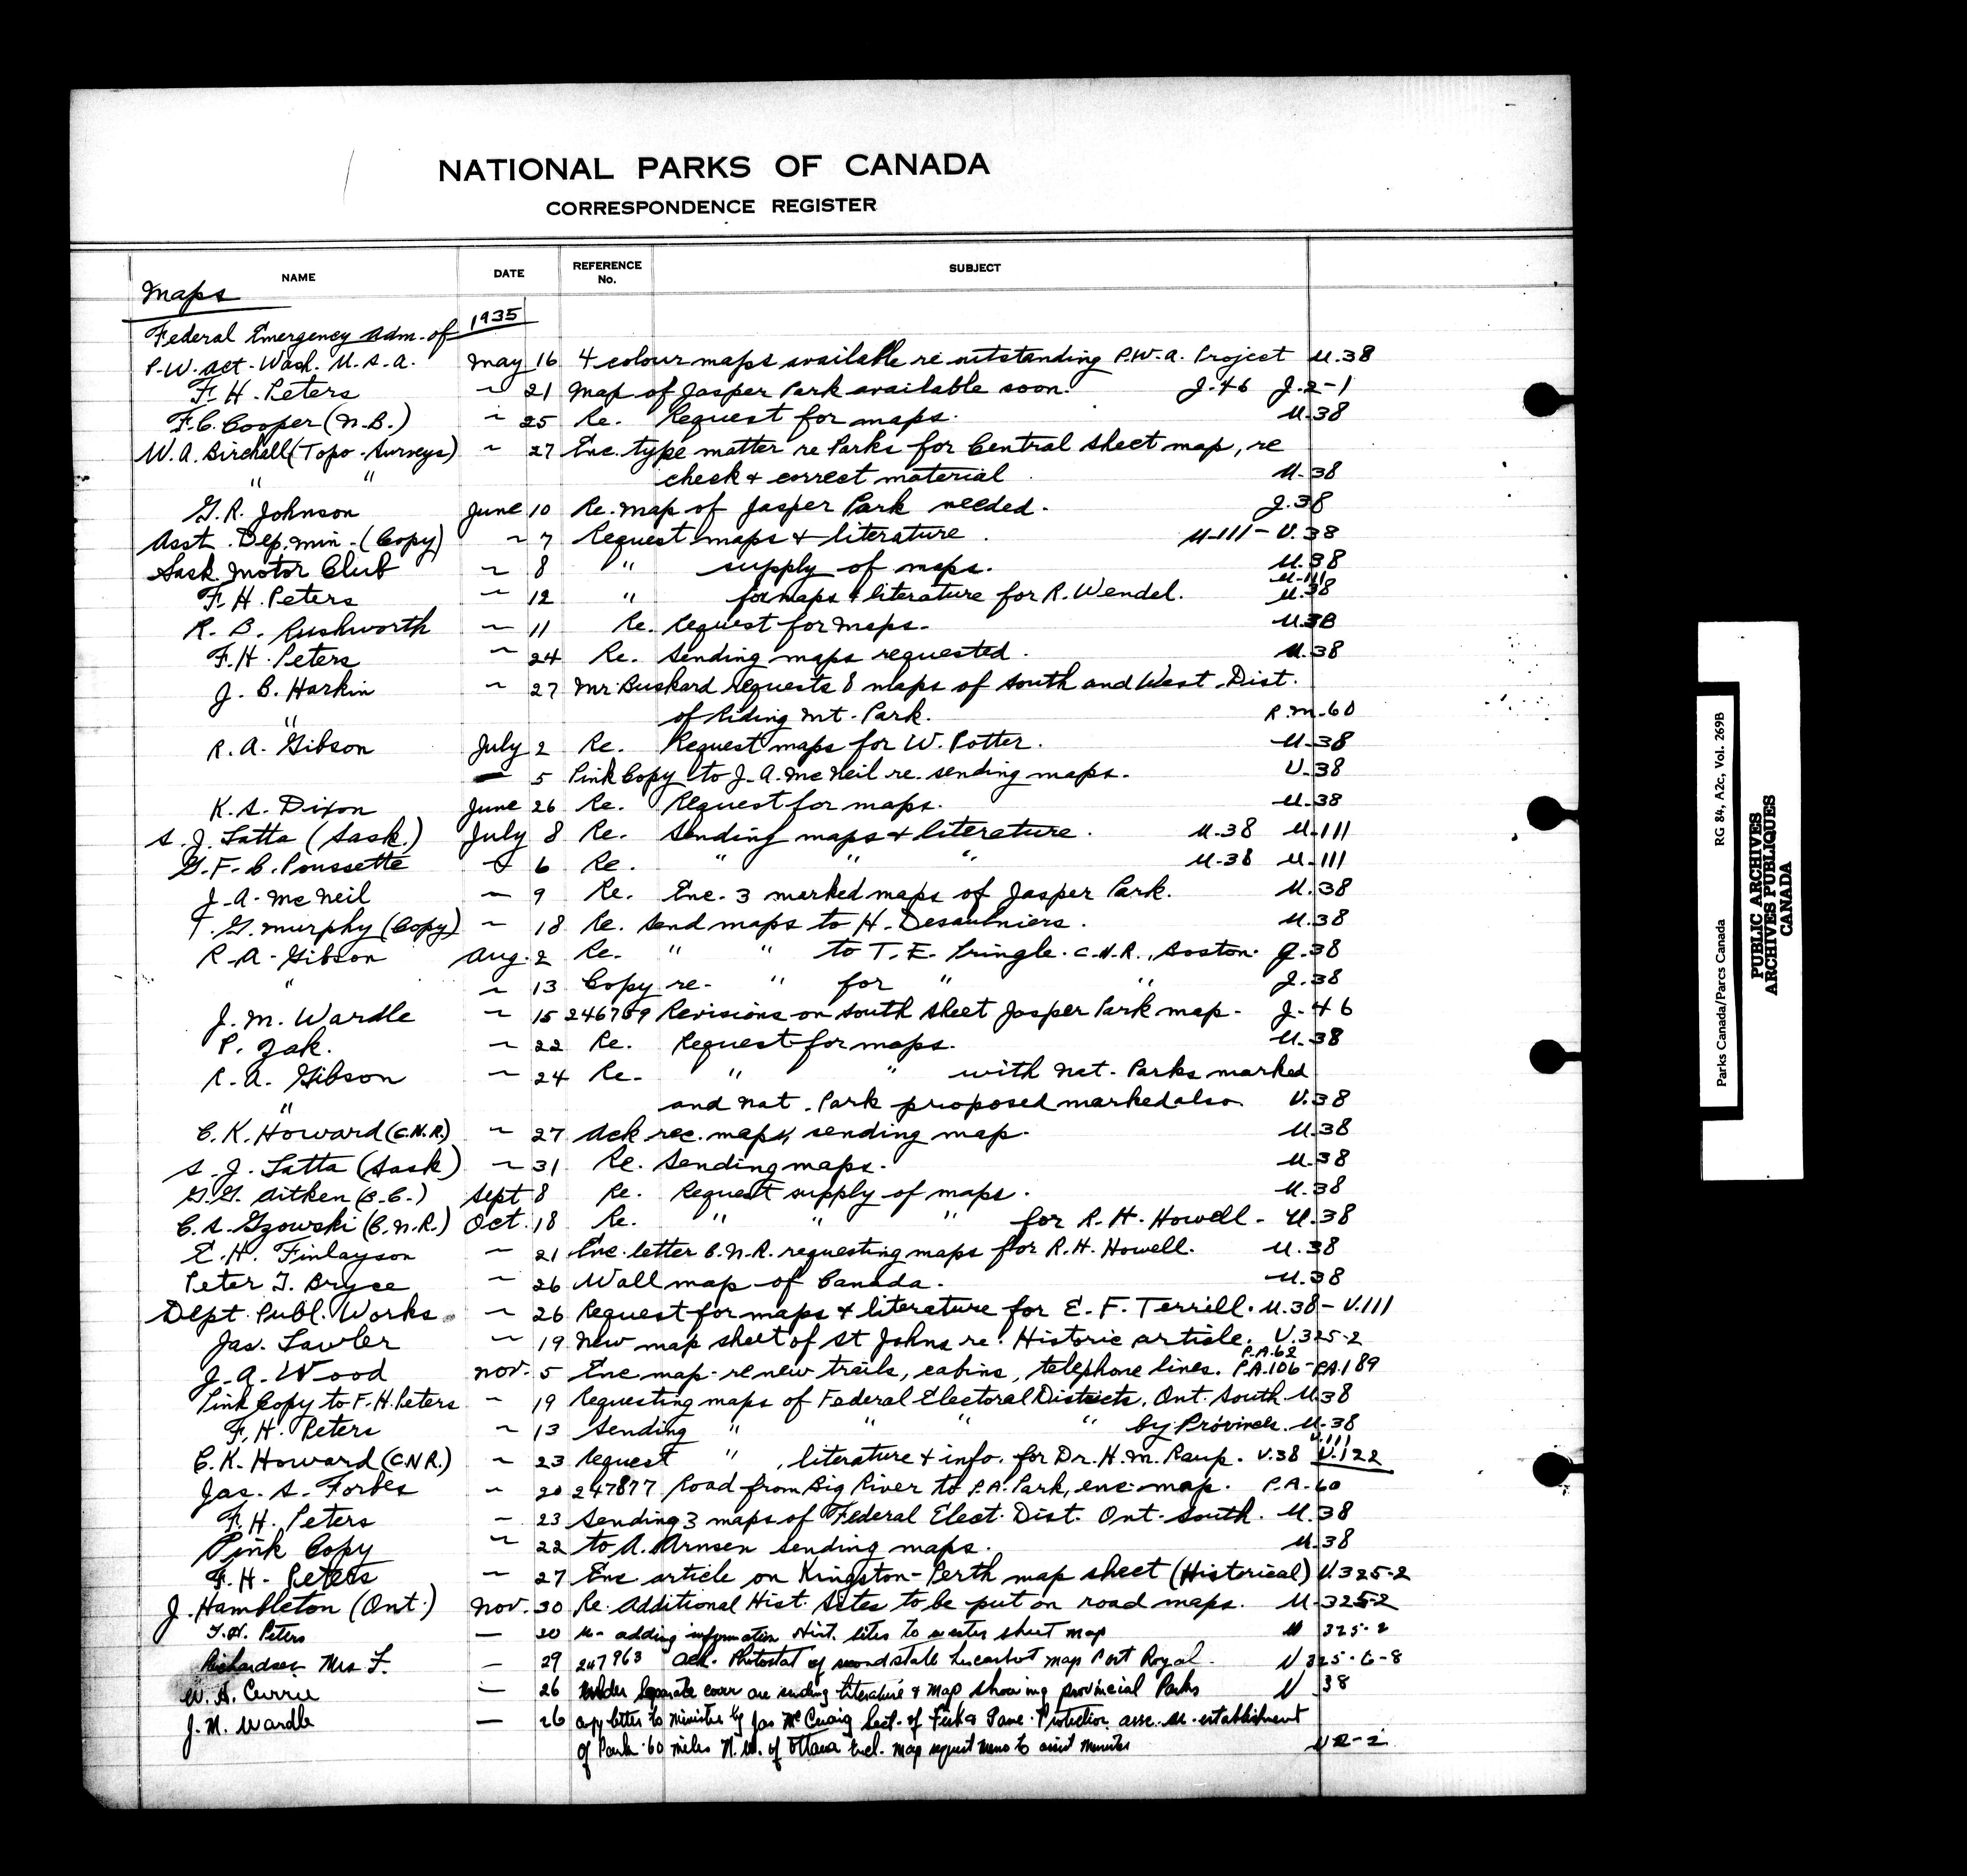 NATIONAL PARKS OF CANADA
CORRESPONDENCE REGISTER
NAME DATE REFERENCE No. SUBJECT
Maps
1935
Federal Emergency Adm. of
P.W. Act. Wash. U.S.A. May 16 4 colour maps available re outstanding P.W.A. Project U.38
F.H. Peters ~ 21 Map of Jasper Park available soon. J.46 J.2-1
F.C. Cooper (N.B.) ~ 25 Re. Request for maps. U.38
W.A. Birchall (Topo. Surveys) ~ 27 Enc. type matter re Parks for Central sheet map, re
" " check & correct material U.38
G.R. Johnson June 10 Re. map of Jasper Park needed. J.38
Asst. Dep. Min. (Copy) ~ 7 Request maps & literature. U-111 - U.38
Sask. Motor Club ~ 8 " supply of maps. U.38
F.H. Peters ~ 12 " for maps & literature for R. Wendel. U-111 U.38
R.B. Rushworth ~ 11 Re. Request for maps. U.38
F.H. Peters ~ 24 Re. Sending maps requested. U.38
J.B. Harkin ~ 27 Mr. Buskard requests 8 maps of South and West Dist.
" of Riding Mt. Park. R.M-60
R.A. Gibson July 2 Re. Request maps for W. Potter. U-38
— 5 Pink Copy to J.A. McNeil re. sending maps. U.38
K.S. Dixon June 26 Re. Request for maps. U.38
S.J. Latta (Sask.) July 8 Re. Sending maps & literature. U.38 U-111
G.F.C. Poussette ~ 6 Re. " " " U-38 U-111
J.A. McNeil ~ 9 Re. Enc. 3 marked maps of Jasper Park. U.38
T.G. Murphy (Copy) ~ 18 Re. Send maps to H. Desaulniers. U.38
R.A. Gibson Aug. 2 Re. " " to T.E. Pringle. C.N.R., Boston. J.38
" ~ 13 Copy re. " for " " J.38
J.M. Wardle ~ 15 246759 Revisions on South sheet Jasper Park map. J-46
P. Zak. ~ 22 Re. Request for maps. U.38
R.A. Gibson ~ 24 Re. " " with Nat. Parks marked
" and Nat. Park proposed marked also. U.38
C.K. Howard (C.N.R.) ~ 27 Ack rec. maps, sending map. U.38
S.J. Latta (Sask) ~ 31 Re. Sending maps. U.38
G.G. Aitken (B.C.) Sept 8 Re. Request supply of maps. U.38
C.S. Gzowski (C.N.R.) Oct. 18 Re. " " " for R.H. Howell. U.38
E.H. Finlayson ~ 21 Enc. letter C.N.R. requesting maps for R.H. Howell. U.38
Peter T. Bryce ~ 26 Wall map of Canada. U.38
Dept. Publ. Works. ~ 26 Request for maps & literature for E.F. Terrill. U.38 - U.111
Jas. Lawler ~ 19 New map sheet of St Johns re. Historic article. U.325-2
J.A. Wood Nov. 5 Enc map re new trails, cabins, telephone lines. P.A.62 P.A.106 - P.A.189
Pink Copy to F.H. Peters ~ 19 Requesting maps of Federal Electoral Districts, Ont. South. U.38
F.H. Peters ~ 13 Sending " " " " by Provinces. U.38
C.K. Howard (C.N.R.) ~ 23 Request " , literature & info. for Dr. H.M. Raup. U.38 U.111 U.122
Jas. S. Forbes ~ 20 247877 Road from Big River to P.A. Park, enc. map. P.A.60
F.H. Peters ~ 23 Sending 3 maps of Federal Elect. Dist. Ont. South. U.38
Pink Copy ~ 22 to A. Arnsen sending maps. U.38
F.H. Peters ~ 27 Enc article on Kingston-Perth map sheet (Historical) U.325-2
J. Hambleton (Ont.) Nov. 30 Re. Additional Hist. Sites to be put on road maps. U-325-2
F.H. Peters — 20 re adding information Hist. Sites to sheet map U 325-2
Richardson Mrs F. — 29 247963 Ack. Photostat of second state Lescarbot map Port Royal. U 325-6-8
W.A. Currie — 26 Under Separate cover are sending literature & Map showing provincial Parks U 38
J.M. Wardle — 26 copy letter to Minister by Jas McCuaig Sect. of Fish & Game Protection asse. re establishment
of Park 60 miles N.W. of Ottawa Encl. Map request memo to assist Minister U 2-2
Parks Canada/Parcs Canada RG 84, A2c, Vol. 269B
PUBLIC ARCHIVES
ARCHIVES PUBLIQUES
CANADA